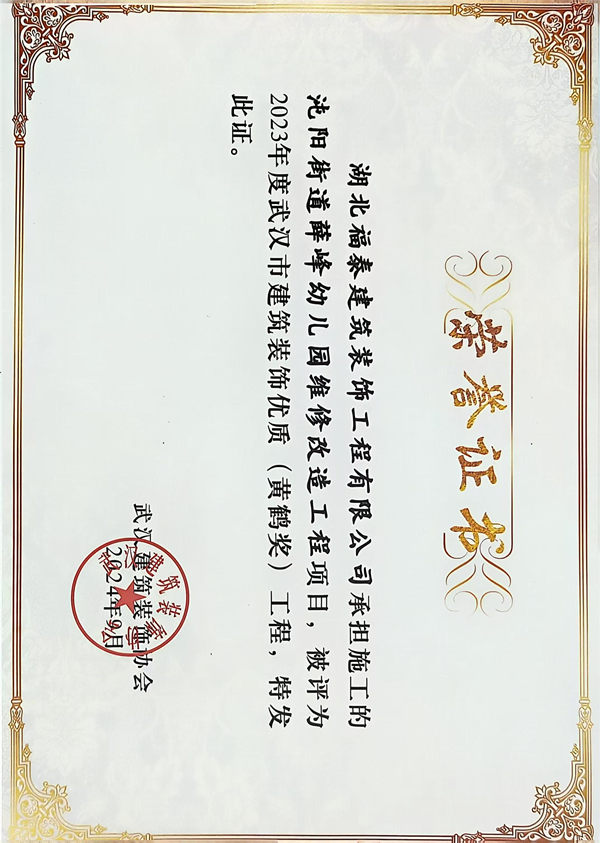 荣誉证书
湖北福泰建筑装饰工程有限公司承担施工的
沌阳街道薛峰幼儿园维修改造工程项目，被评为
2023年度武汉市建筑装饰优质（黄鹤奖）工程，特发
此证。
武汉建筑装饰协会
2024年9月